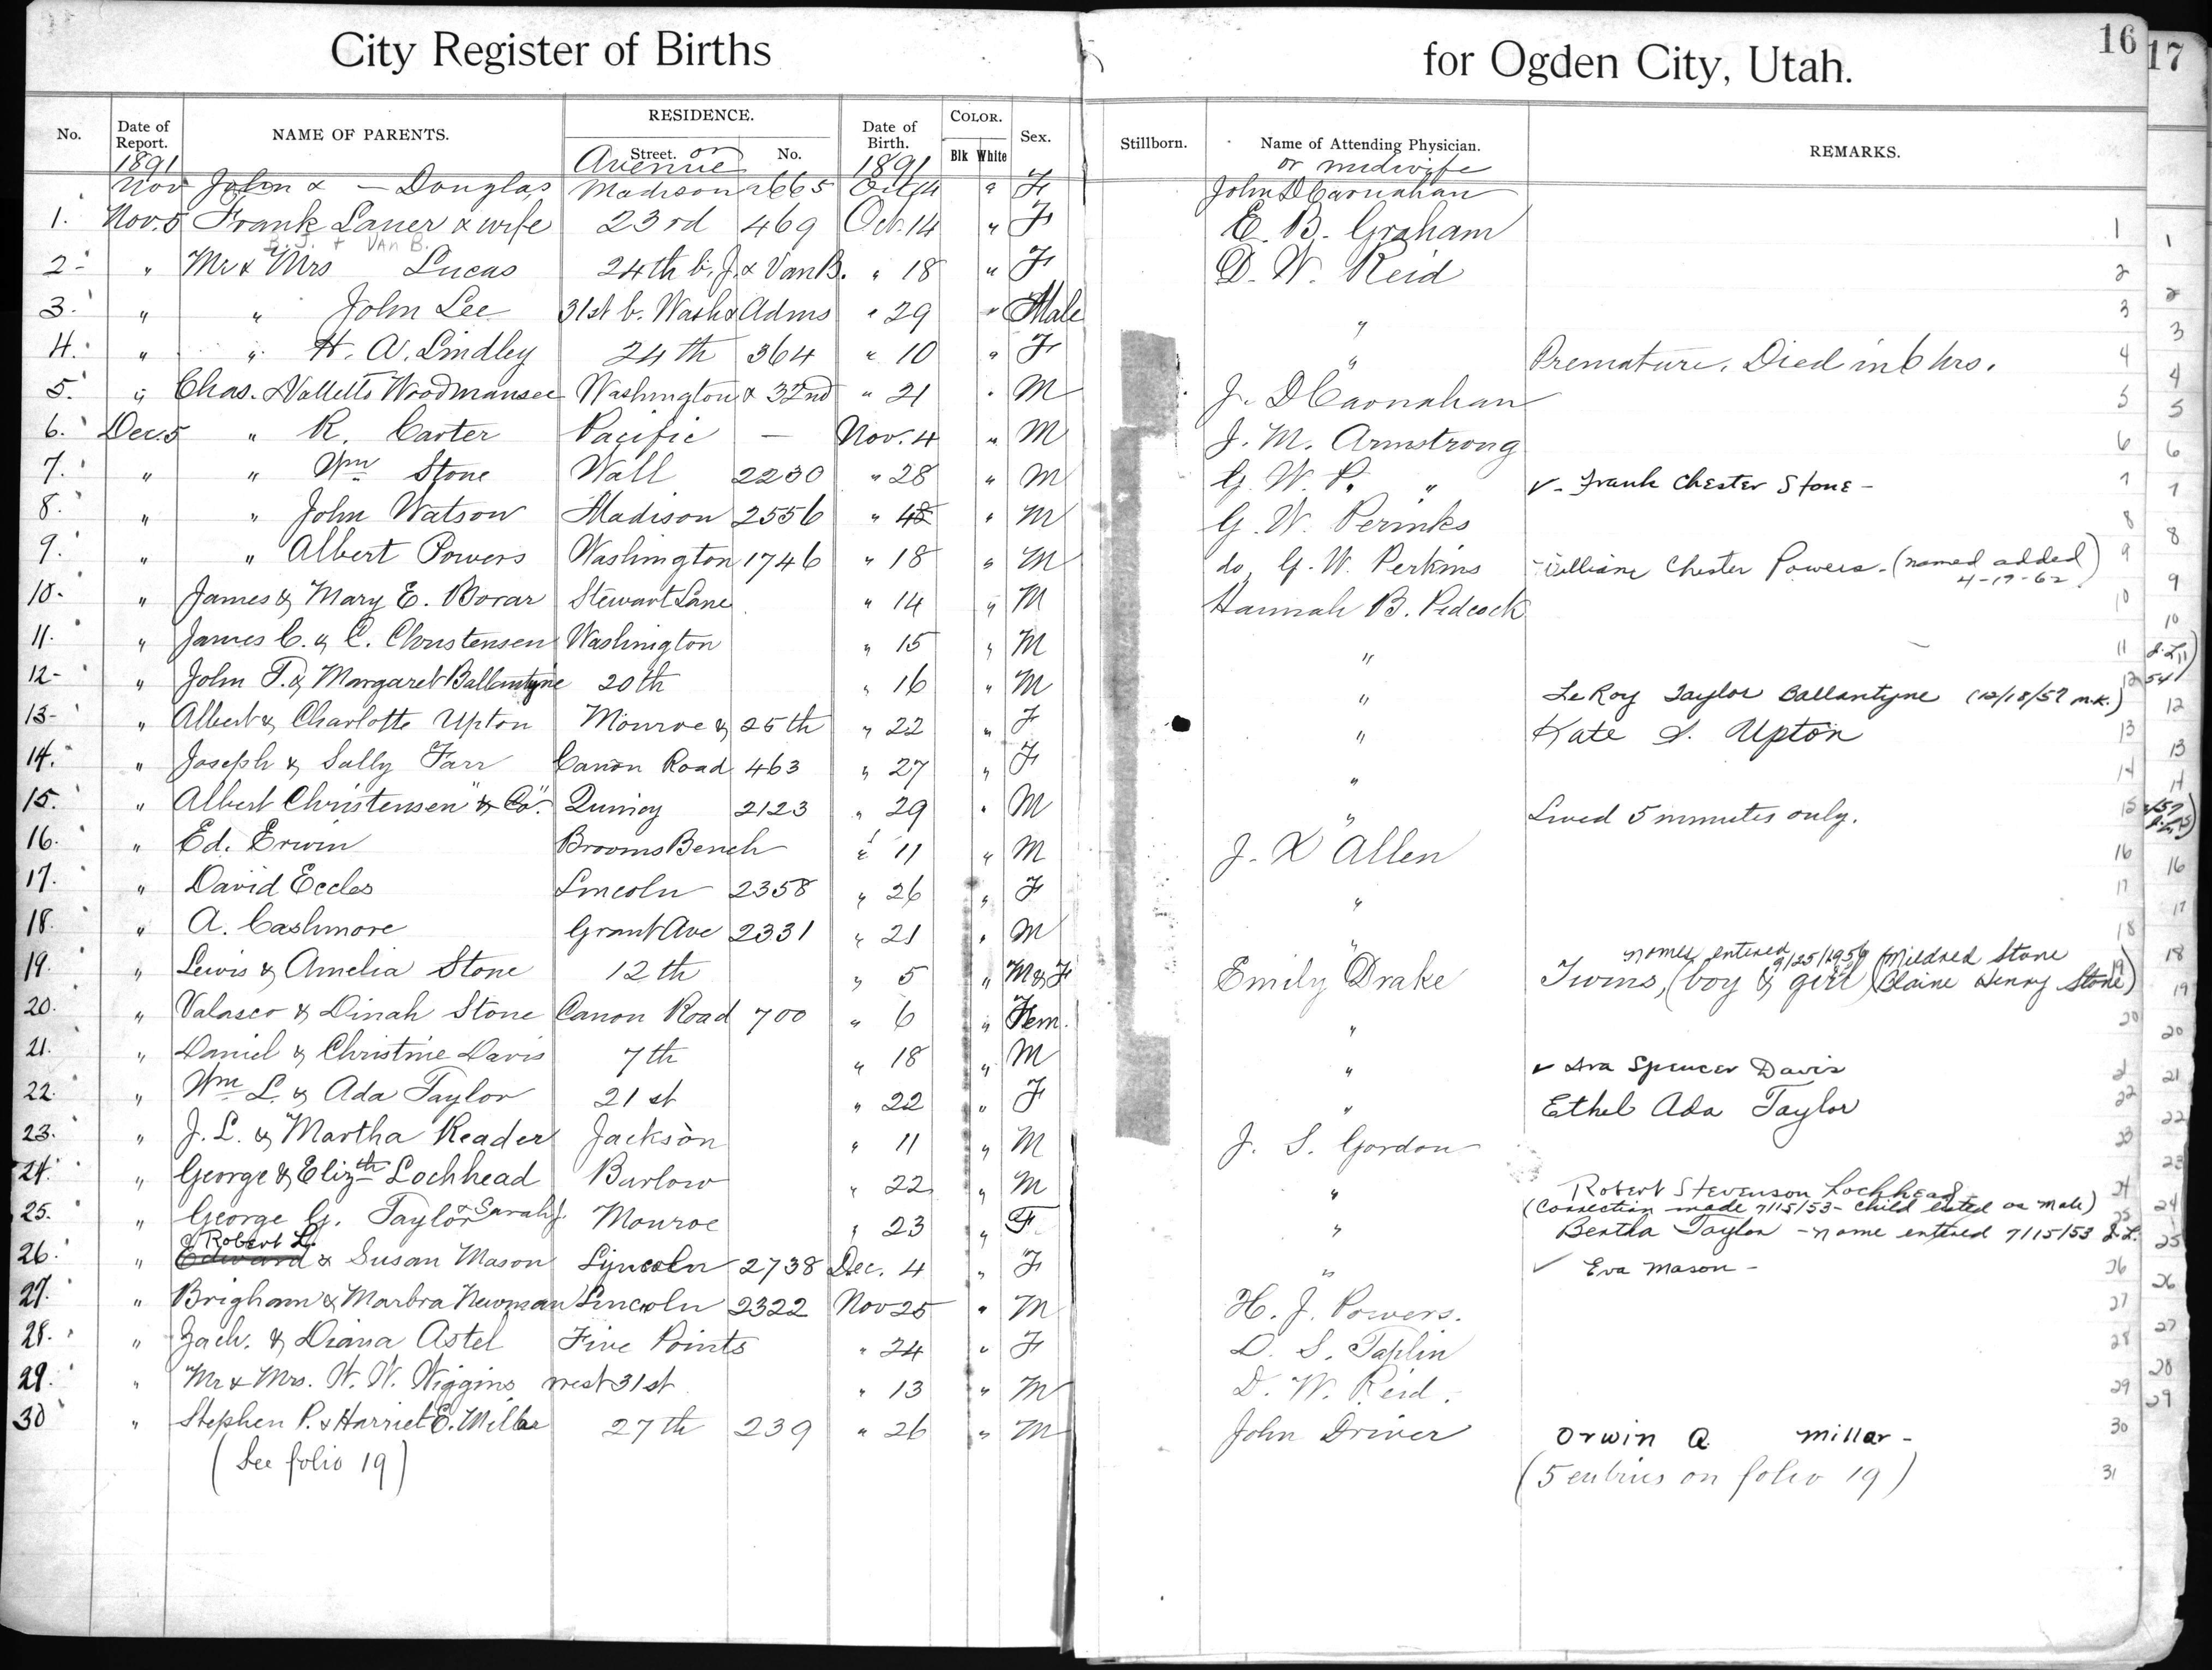 City Register of Births for Ogden City, Utah. 16 17
No. Date of Report. NAME OF PARENTS. RESIDENCE. Street. or Avenue No. Date of Birth. COLOR. Blk White Sex. Stillborn. Name of Attending Physician. or midwife REMARKS.
1891 1891
Nov John & — Douglas, Madison 2665 Oct 14 " F John D Carnahan
1. Nov. 5 Frank Lauer & wife 23rd 469 Oct. 14 " F E. B. Graham 1 1
B. J. + Van B.
2- " Mr & Mrs Lucas 24th b. J. & Van B. " 18 " F D. W. Reid 2 2
3. " " John Lee 31st b. Wash & Adms " 29 " Male " 3 3
4. " " H. A. Lindley 24th 364 " 10 " F " Premature. Died in 6 hrs. 4 4
5. " Chas. Woodmansee Washington & 32nd " 21 " M J. D Carnahan 5 5
6. Dec. 5 " R. Carter Pacific — Nov. 4 " M J. M. Armstrong 6 6
7. " " Wm Stone Wall 2230 " 28 " M G. W. P. " ✓ - Frank Chester Stone - 7 7
8. " " John Watson Madison 2556 " " M G. W. Perinks 8 8
9. " " Albert Powers Washington 1746 " 18 " M do, G. W. Perkins William Chester Powers - (named added 4-17-62) 9 9
10. " James & Mary E. Bovar Stewart Lane " 14 " M Hannah B. Pidcock 10 10
11. " James C. & C. Christensen Washington " 15 " M " 11 11
12- " John T. & Margaret Ballantyne 20th " 16 " M " LeRoy Taylor Ballantyne (12/18/57 m.k.) 12 12
13- " Albert & Charlotte Upton Monroe & 25th " 22 " F " Kate S. Upton 13 13
14. " Joseph & Sally Farr Canon Road 463 " 27 " F " 14 14
15. " Albert Christensen "& Co". Quincy 2123 " 29 " M " Lived 5 minutes only. 15
16. " Ed. Erwin Brooms Bench " 11 " M J. X Allen 16 16
17. " David Eccles Lincoln 2358 " 26 " F " 17 17
18. " A. Cashmore Grant Ave 2331 " 21 " M " 18 18
names entered 9/25/1956
19. " Lewis & Amelia Stone 12th " 5 " M & F Emily Drake Twins, (boy & girl) (Mildred Stone Blaine Henry Stone) 19 19
20. " Valasco & Dinah Stone Canon Road 700 " 6 " Fem. " 20 20
21. " Daniel & Christine Davis 7th " 18 " M " ✓ Ira Spencer Davis 21 21
22. " Wm L. & Ada Taylor 21st " 22 " F " Ethel Ada Taylor 22 22
23. " J. L. & Martha Reader Jackson " 11 " M J. S. Gordon 23 23
24. " George & Elizth Lochhead Barlow " 22 " M " Robert Stevenson Lochhead 24 24
(Correction made 7/15/53 - child listed as male)
25. " George G. Taylor & Sarah J. Monroe " 23 " F. " Bertha Taylor - name entered 7/15/53 J.L. 25 25
Robert L.
26. " Edward & Susan Mason Lyncoln 2738 Dec. 4 " F " ✓ Eva Mason - 26 26
27. " Brigham & Marbra Newman Lincoln 2322 Nov 25 " M H. J. Powers. 27 27
28. " Zach. & Diana Astel Five Points " 24 " F D. S. Taplin 28 28
29. " Mr & Mrs. W. W. Wiggins west 31st " 13 " M D. W. Reid. 29 29
30 " Stephen P. & Harriet E. Millar 27th 239 " 26 " M John Driver Orwin A. Millar - 30
(See folio 19) (5 entries on folio 19) 31